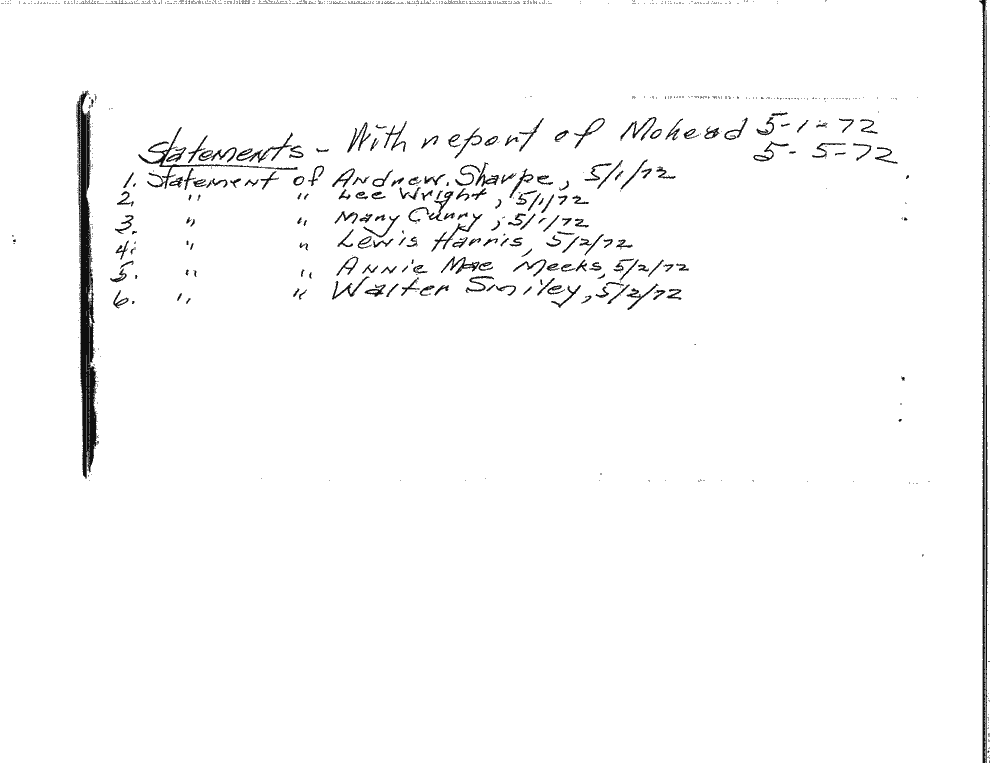 Statements - With report of Mohead 5-1-72
5-5-72
1. Statement of Andrew Sharpe, 5/1/72
2. " " Lee Wright, 5/1/72
3. " " Mary Curry, 5/1/72
4. " " Lewis Harris, 5/2/72
5. " " Annie Mae Meeks, 5/2/72
6. " " Walter Smiley, 5/2/72